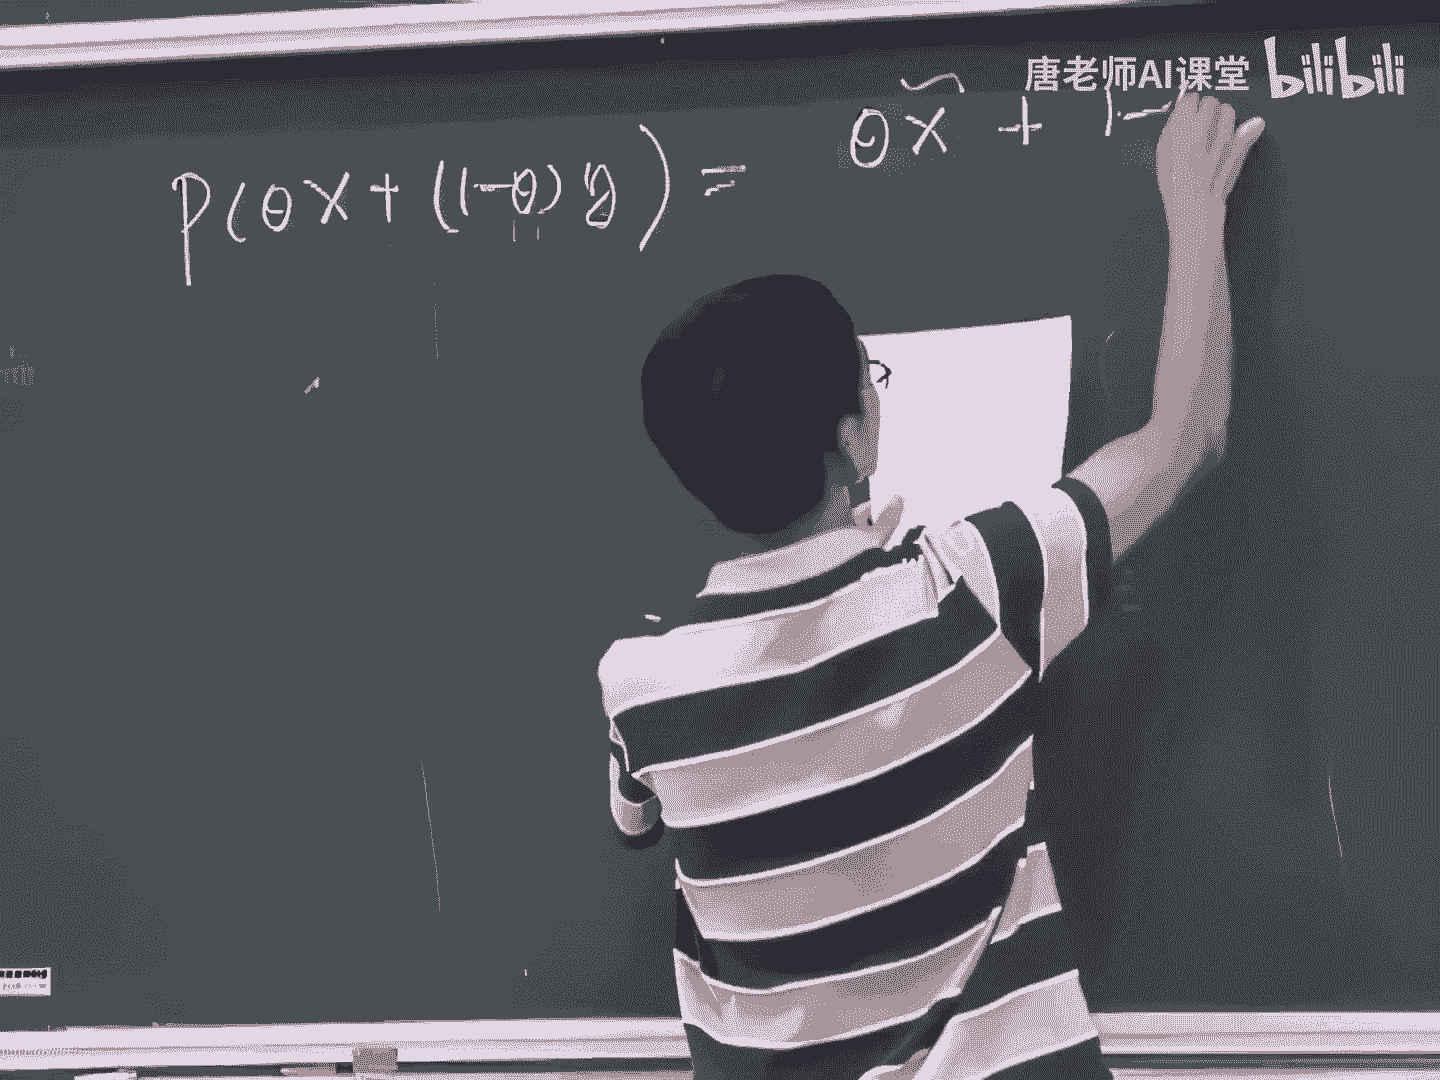 唐老师AI课堂 bilibili
P(θx+(1-θ)y)= θx̃ + 1-